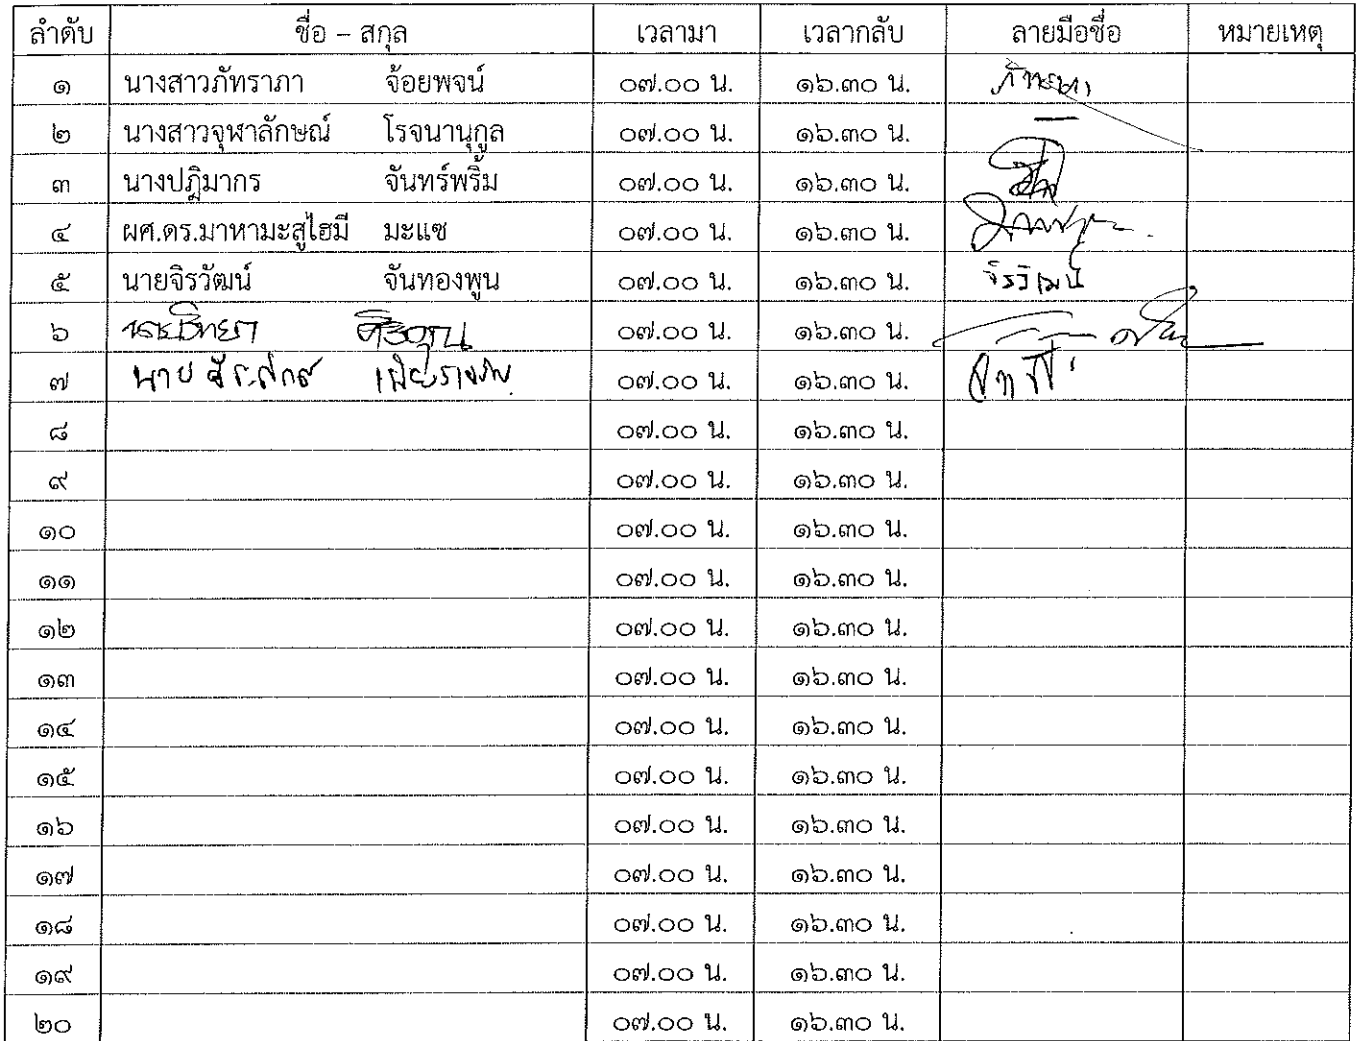 ลำดับ ชื่อ – สกุล เวลามา เวลากลับ ลายมือชื่อ หมายเหตุ
๑ นางสาวภัทราภา จ้อยพจน์ ๐๗.๐๐ น. ๑๖.๓๐ น.
๒ นางสาวจุฬาลักษณ์ โรจนานุกูล ๐๗.๐๐ น. ๑๖.๓๐ น.
๓ นางปฎิมากร จันทร์พริ้ม ๐๗.๐๐ น. ๑๖.๓๐ น.
๔ ผศ.ดร.มาหามะสูไฮมี มะแซ ๐๗.๐๐ น. ๑๖.๓๐ น.
๕ นายจิรวัฒน์ จันทองพูน ๐๗.๐๐ น. ๑๖.๓๐ น. จิรวัฒน์
๖ ๐๗.๐๐ น. ๑๖.๓๐ น.
๗ นาย ๐๗.๐๐ น. ๑๖.๓๐ น.
๘ ๐๗.๐๐ น. ๑๖.๓๐ น.
๙ ๐๗.๐๐ น. ๑๖.๓๐ น.
๑๐ ๐๗.๐๐ น. ๑๖.๓๐ น.
๑๑ ๐๗.๐๐ น. ๑๖.๓๐ น.
๑๒ ๐๗.๐๐ น. ๑๖.๓๐ น.
๑๓ ๐๗.๐๐ น. ๑๖.๓๐ น.
๑๔ ๐๗.๐๐ น. ๑๖.๓๐ น.
๑๕ ๐๗.๐๐ น. ๑๖.๓๐ น.
๑๖ ๐๗.๐๐ น. ๑๖.๓๐ น.
๑๗ ๐๗.๐๐ น. ๑๖.๓๐ น.
๑๘ ๐๗.๐๐ น. ๑๖.๓๐ น.
๑๙ ๐๗.๐๐ น. ๑๖.๓๐ น.
๒๐ ๐๗.๐๐ น. ๑๖.๓๐ น.